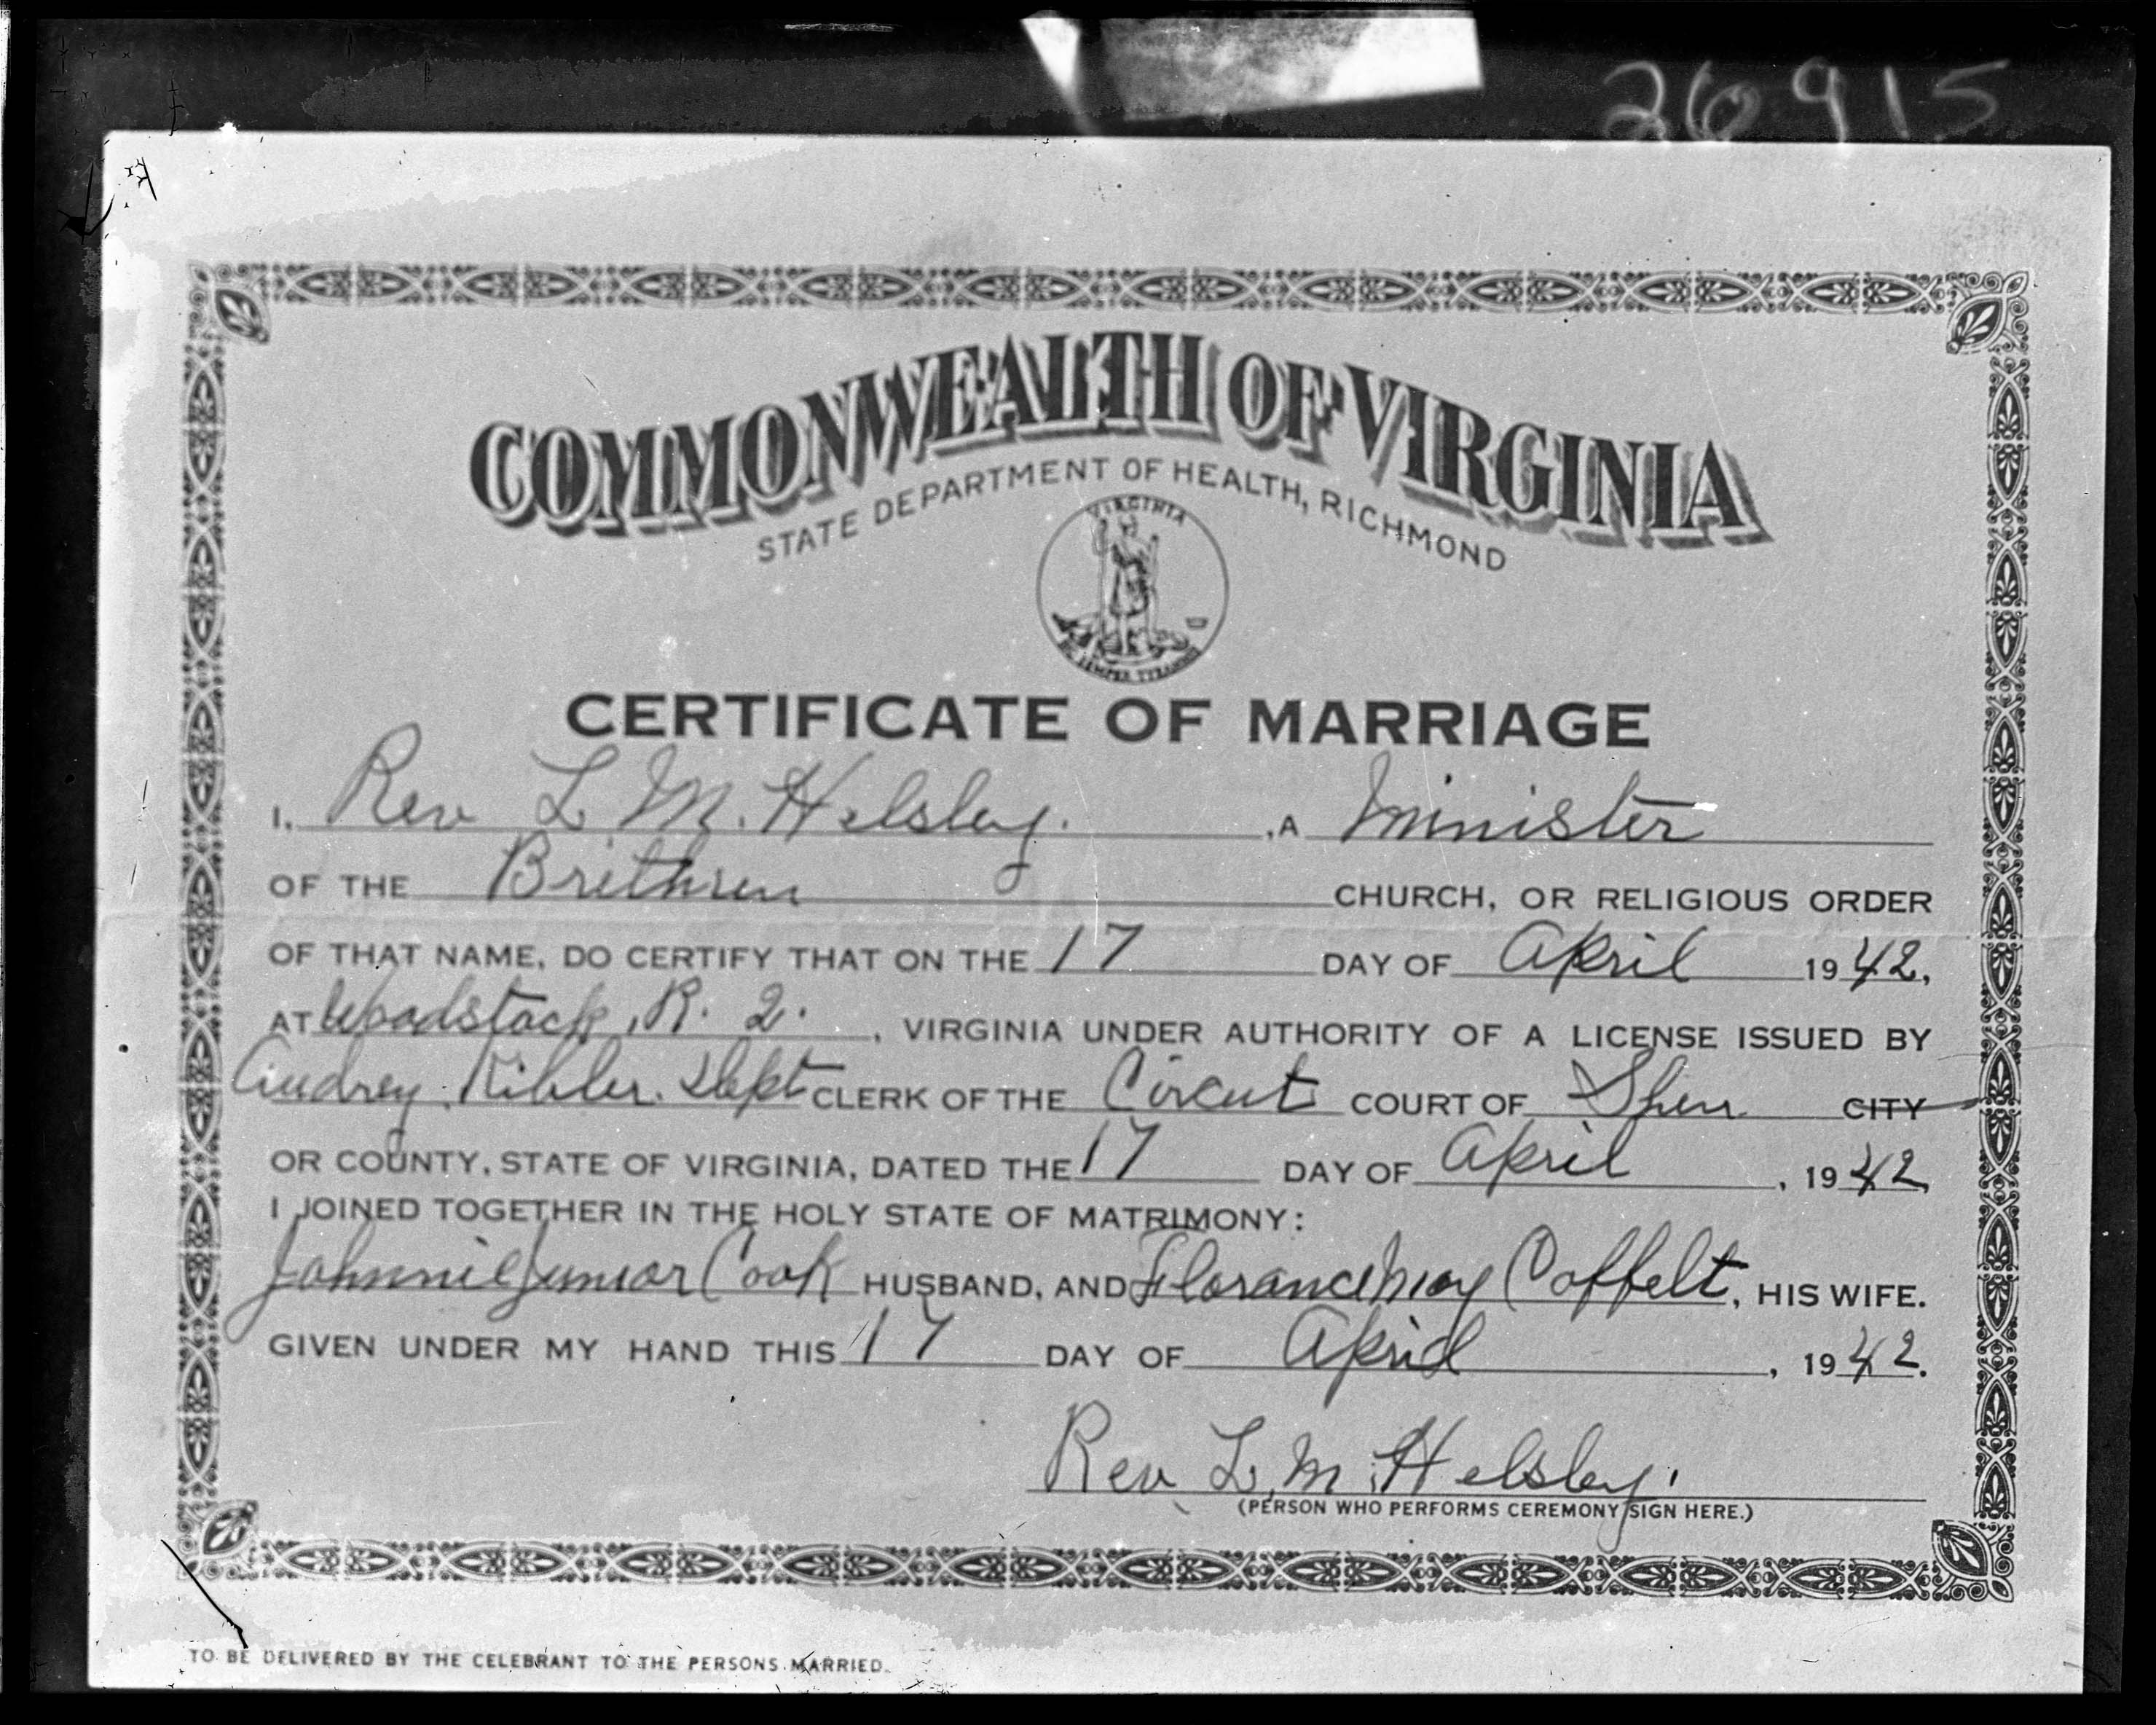 26915
COMMONWEALTH OF VIRGINIA
STATE DEPARTMENT OF HEALTH, RICHMOND
VIRGINIA
SIC SEMPER TYRANNIS
CERTIFICATE OF MARRIAGE
I, Rev L. M. Helsley. , A Minister
OF THE Brethren CHURCH, OR RELIGIOUS ORDER
OF THAT NAME, DO CERTIFY THAT ON THE 17 DAY OF April 1942,
AT Woodstock, R. 2. , VIRGINIA UNDER AUTHORITY OF A LICENSE ISSUED BY
Audrey Kibler. Dept CLERK OF THE Circut COURT OF Shen CITY
OR COUNTY, STATE OF VIRGINIA, DATED THE 17 DAY OF April , 1942,
I JOINED TOGETHER IN THE HOLY STATE OF MATRIMONY:
Johnnie Junior Cook HUSBAND, AND Florance May Coffelt, HIS WIFE.
GIVEN UNDER MY HAND THIS 17 DAY OF April , 1942.
Rev. L. M. Helsley.
(PERSON WHO PERFORMS CEREMONY SIGN HERE.)
TO BE DELIVERED BY THE CELEBRANT TO THE PERSONS MARRIED.